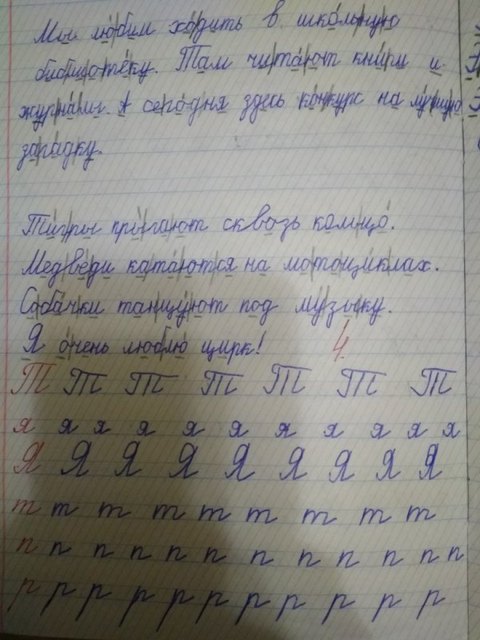 Мы любим ходить в школьную
библиотеку. Там читают книги и
журналы. А сегодня здесь конкурс на лучшую
загадку.
Тигры прыгают сквозь кольцо.
Медведи катаются на мотоциклах.
Собачки танцуют под музыку.
Я очень люблю цирк! 4
Т Т Т Т Т Т Т
я я я я я я я я я я я
Я Я Я Я Я Я Я Я Я
т т т т т т т т т
п п п п п п п п п п п п
р р р р р р р р р р р р